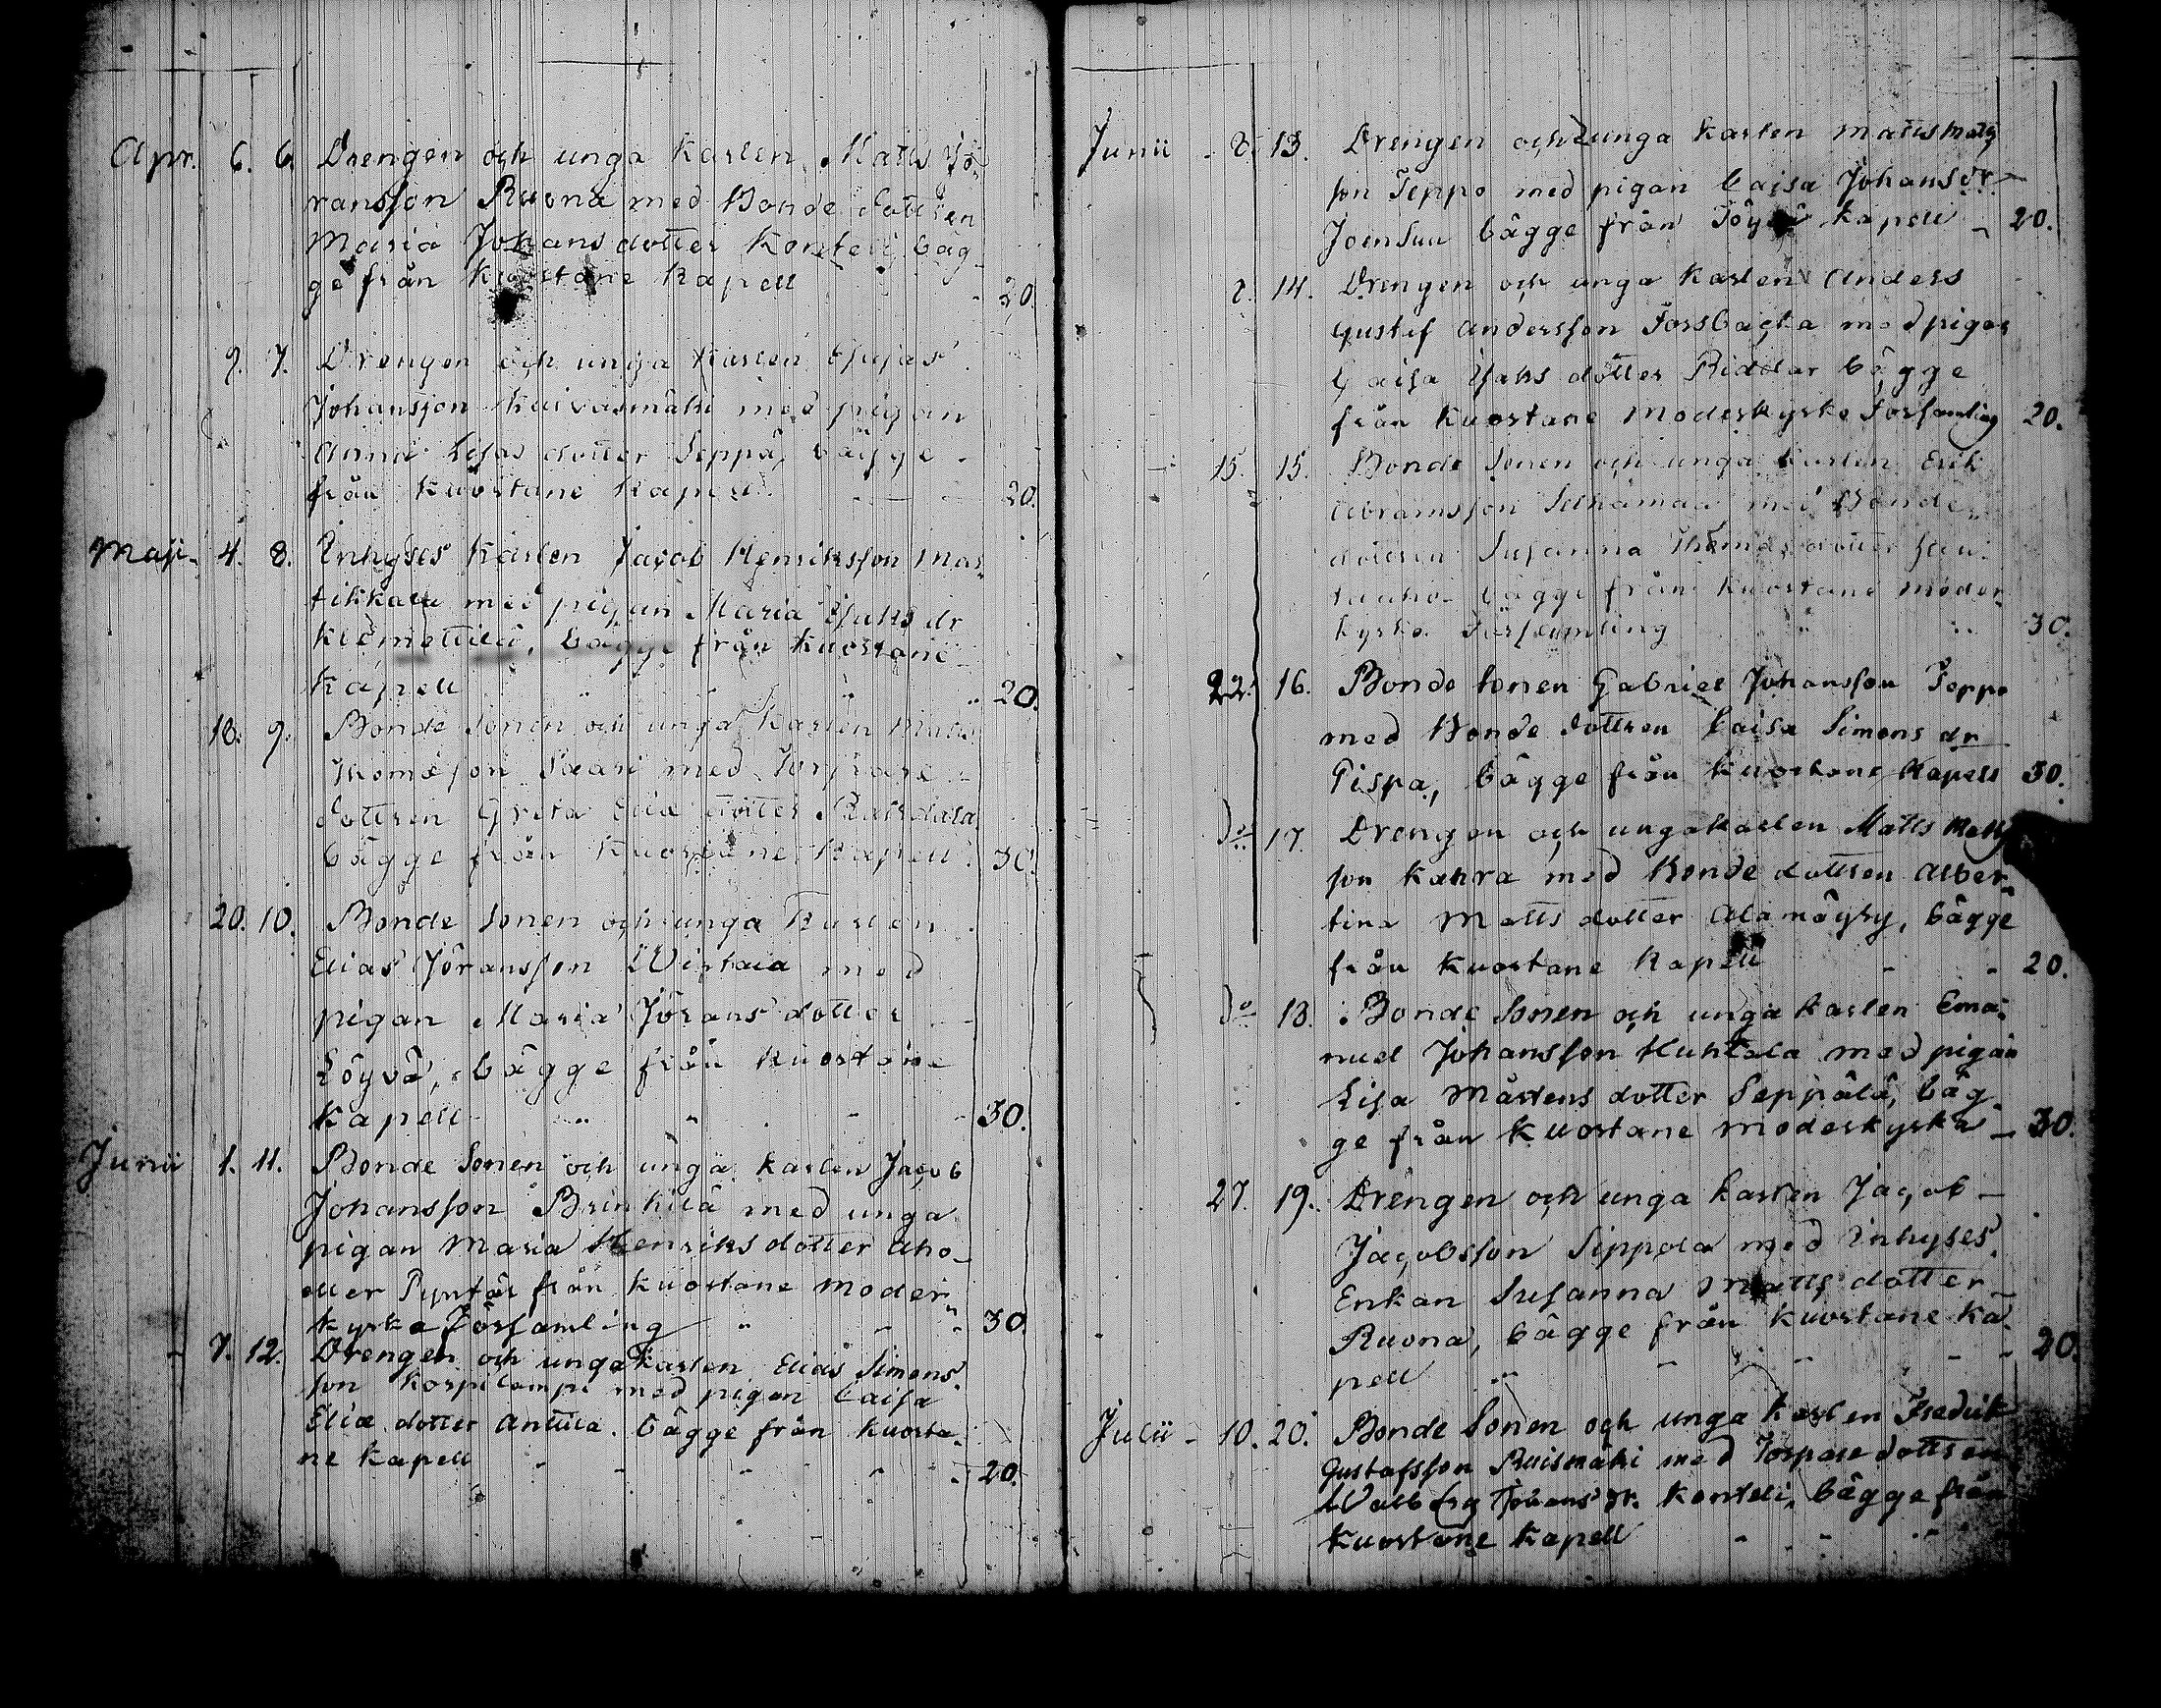 Apr. 6. 6. Drengen och unga Karlen Matts Jö-
ransson Ruona med Bonde dottren
Maria Johans dotter Konteli, båg-
ge från Kuortane Kapell - 20.
9. 7. Drengen och unga Karlen
Johansson med pigan
Anna Lisas dotter Seppä, bägge
från Kuortane Kapell. - - - 20.
Maji - 4. 8. Inhyses Karlen Jacob Henriksson Mar-
tikkala med pigan Maria Isaks dr
Klemettilä, bägge från Kuortane
Kapell " " " " 20.
18. 9. Bonde Sonen och unga Karlen Matts
Thomasson Saari med Torpare
dottren Greta Eliæ dotter
bägge från Kuortane Kapell. 30.
20. 10. Bonde Sonen och unga Karlen
Elias Jöransson Wirtala med
pigan Maria Jörans dotter
Löyvä, bägge från Kuortane
Kapell - " " - - 30.
Junii 1. 11. Bonde Sonen och unga Karlen Jacob
Johansson Brinkilä med unga
pigan Maria Henriksdotter Aho-
eller Pyntär från Kuortane Moder
kyrko Församling " - " 30.
- 7. 12. Drengen och unga Karlen Elias Simons-
son Korpilampi med pigan Caisa
Eliæ dotter Anttila. bägge från Kuorta-
ne Kapell - - " " - 20.
Junii - 8. 13. Drengen och unga Karlen Matts Matts
son Teppo med pigan Caisa Johans dr.
Joensuu bägge från Töysä Kapell - 20.
14. Drengen och unga Karlen Anders
Gustaf Andersson Forsbacka med pigan
Caisa Isaks dotter Riddar bägge
från Kuortane Moderkyrko Församling 20.
15. 15. Bonde Sonen och unga Karlen Erik
Abramsson med Bonde
dottren Susanna Thomas dotter Hau-
taaho bägge från Kuortane Moder
kyrko Församling " " 30.
22. 16. Bonde Sonen Gabriel Johansson Teppo
med Bonde dottren Caisa Simons dr
Pispa, bägge från Kuortane Kapell 30.
Do 17. Drengen och unga Karlen Matts Matts
son Kahra med Bonde dottren Alber-
tina Matts dotter Alamäyry, bägge
från Kuortane Kapell - - 20.
Do 18. Bonde Sonen och unga Karlen Ema-
nuel Johansson Huhtala med pigan
Lisa Mårtens dotter Seppälä, bäg-
ge från Kuortane Moderkyrka - 30.
27. 19. Drengen och unga Karlen Jacob -
Jacobsson Sippola med Inhyses
Enkan Susanna Matts dotter
Ruona, bägge från Kuortane Ka-
pell " - - - - 20.
Julii - 10. 20. Bonde Sonen och unga Karlen Fredrik
Gustafsson Ruismäki med Torpare dottren
Walborg Johans dr. Konteli, bägge från
Kuortane Kapell - - " -